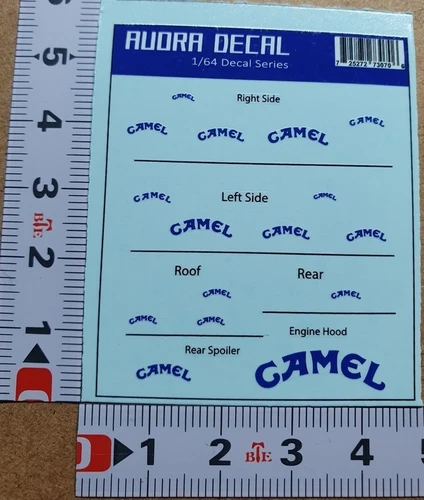 AUDRA DECAL
1/64 Decal Series
7 25272 73070 6
CAMEL
Right Side
CAMEL CAMEL CAMEL CAMEL
CAMEL Left Side CAMEL
CAMEL CAMEL CAMEL
Roof Rear
CAMEL CAMEL
CAMEL CAMEL
Engine Hood
Rear Spoiler
CAMEL CAMEL
5
4
3
BTE
2
1
0
0 1 2 BTE 3 4 5